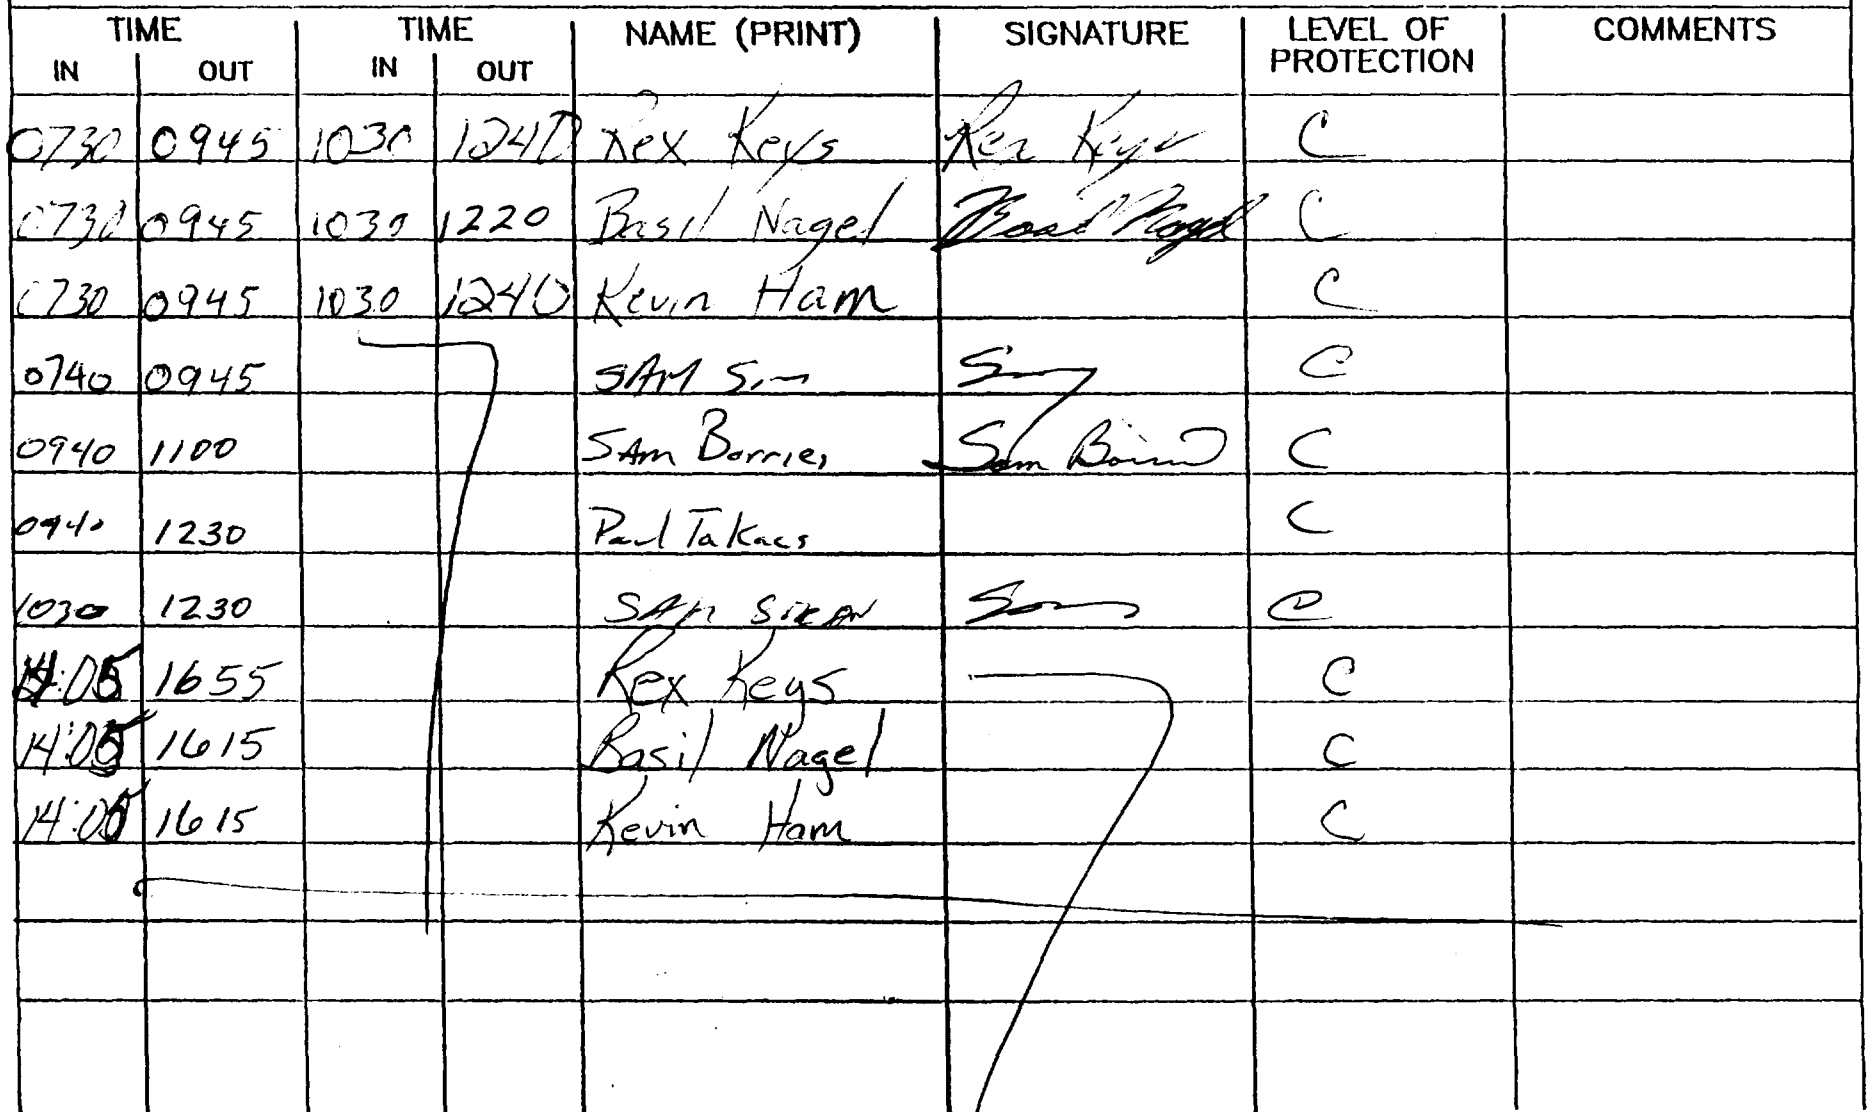 TIME TIME NAME (PRINT) SIGNATURE LEVEL OF PROTECTION COMMENTS
IN OUT IN OUT
0730 0945 1030 1240 Rex Keys Rex Keys C
0730 0945 1030 1220 Basil Nagel Basil Nagel C
0730 0945 1030 1240 Kevin Ham C
0740 0945 SAM C
0940 1100 SAM Borries Sam Borries C
0940 1230 Paul Takacs C
1030 1230 SAM C
14:05 1655 Rex Keys C
14:05 1615 Basil Nagel C
14:05 1615 Kevin Ham C